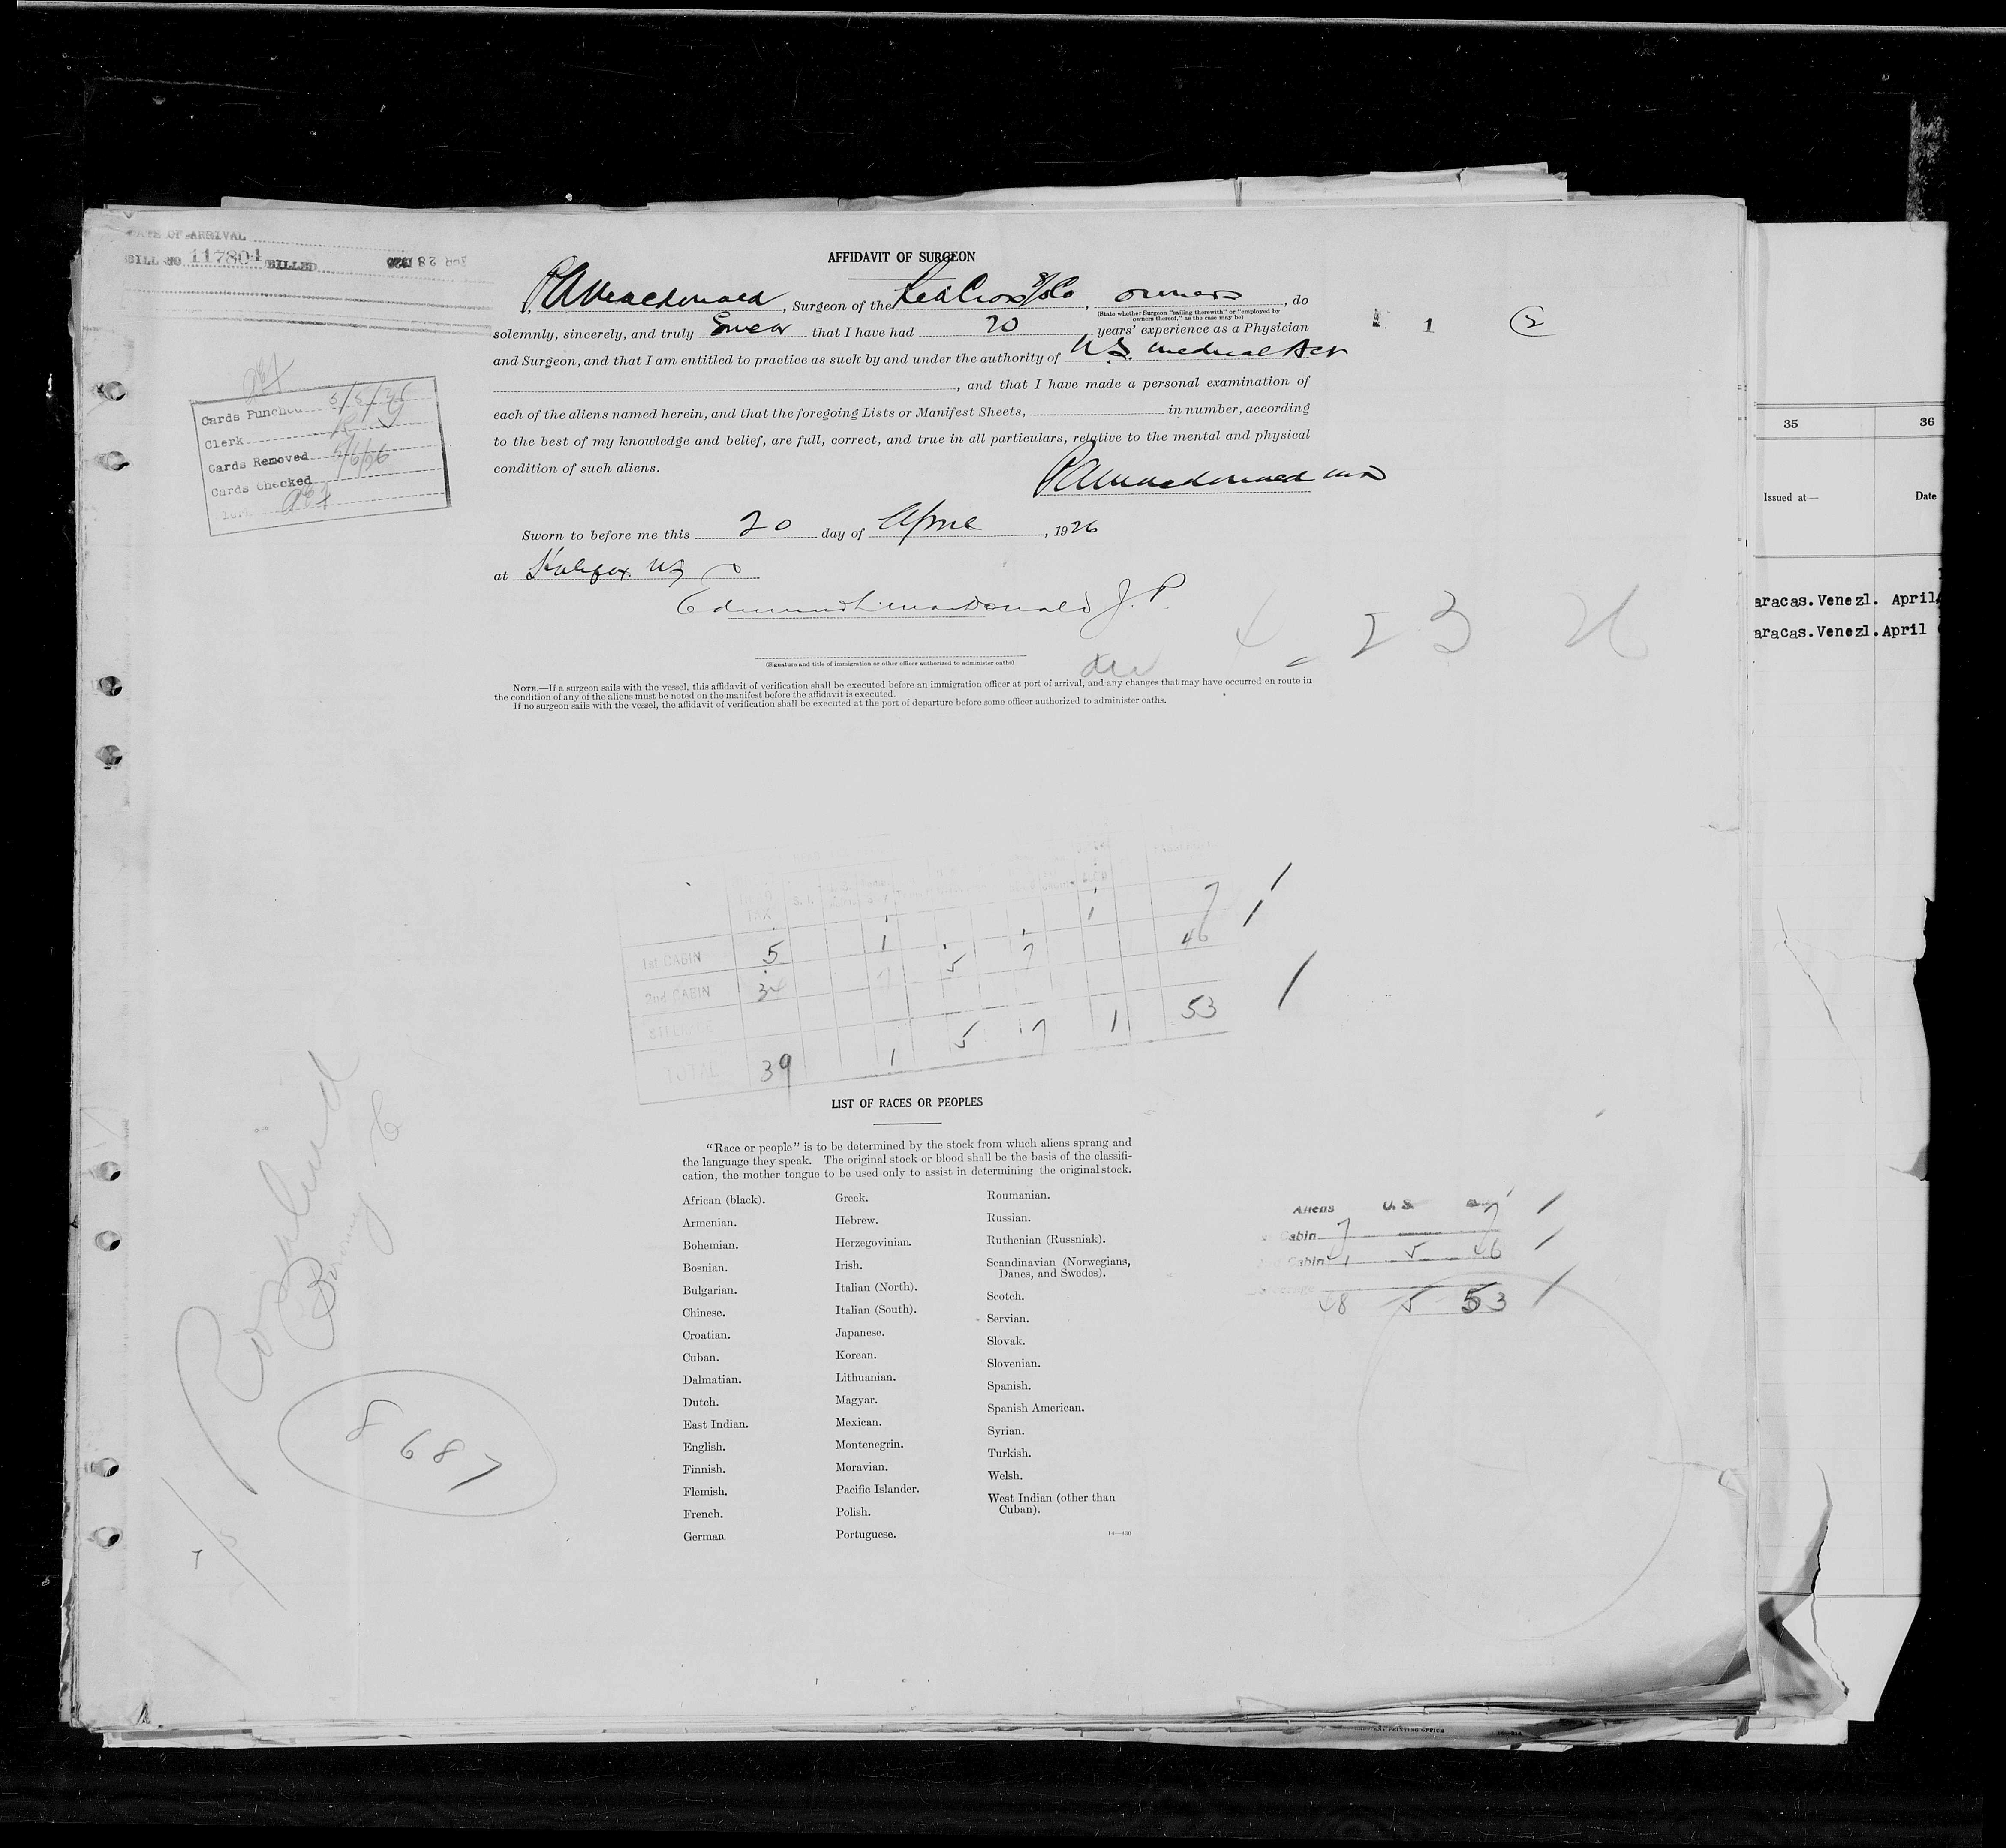 DATE OF ARRIVAL
BILL NO 117804 BILLED APR 28 1926
AFFIDAVIT OF SURGEON
I, P A Macdonald, Surgeon of the Red Cross S/S Co, owners, do
(State whether Surgeon "sailing therewith" or "employed by owners thereof," as the case may be)
solemnly, sincerely, and truly Swear that I have had 20 years' experience as a Physician
1 2
and Surgeon, and that I am entitled to practice as such by and under the authority of N.S. Medical Act
, and that I have made a personal examination of
each of the aliens named herein, and that the foregoing Lists or Manifest Sheets, in number, according
to the best of my knowledge and belief, are full, correct, and true in all particulars, relative to the mental and physical
condition of such aliens.
P A Macdonald MD
Sworn to before me this 20 day of April, 1926
at Halifax NS
Macdonald J. P.
(Signature and title of immigration or other officer authorized to administer oaths)
4 - 23 26
NOTE.—If a surgeon sails with the vessel, this affidavit of verification shall be executed before an immigration officer at port of arrival, and any changes that may have occurred en route in
the condition of any of the aliens must be noted on the manifest before the affidavit is executed.
If no surgeon sails with the vessel, the affidavit of verification shall be executed at the port of departure before some officer authorized to administer oaths.
Cards Punched 5/5/26
Clerk
Cards Removed 5/6/26
Cards Checked
TAX
1st CABIN 5 1 1 7
2nd CABIN 34 5 7 46
STEERAGE
TOTAL 39 1 5 7 1 53
LIST OF RACES OR PEOPLES
"Race or people" is to be determined by the stock from which aliens sprang and
the language they speak. The original stock or blood shall be the basis of the classifi-
cation, the mother tongue to be used only to assist in determining the original stock.
African (black).
Armenian.
Bohemian.
Bosnian.
Bulgarian.
Chinese.
Croatian.
Cuban.
Dalmatian.
Dutch.
East Indian.
English.
Finnish.
Flemish.
French.
German
Greek.
Hebrew.
Herzegovinian.
Irish.
Italian (North).
Italian (South).
Japanese.
Korean.
Lithuanian.
Magyar.
Mexican.
Montenegrin.
Moravian.
Pacific Islander.
Polish.
Portuguese.
Roumanian.
Russian.
Ruthenian (Russniak).
Scandinavian (Norwegians,
Danes, and Swedes).
Scotch.
Servian.
Slovak.
Slovenian.
Spanish.
Spanish American.
Syrian.
Turkish.
Welsh.
West Indian (other than
Cuban).
14—430
Aliens U.S
Cabin 7 7
Cabin 41 5 46
48 5 53
Rosalind
Bowring & Co
8687
35 36
Issued at— Date
aracas.Venezl. April
aracas.Venezl.April
PRINTING OFFICE